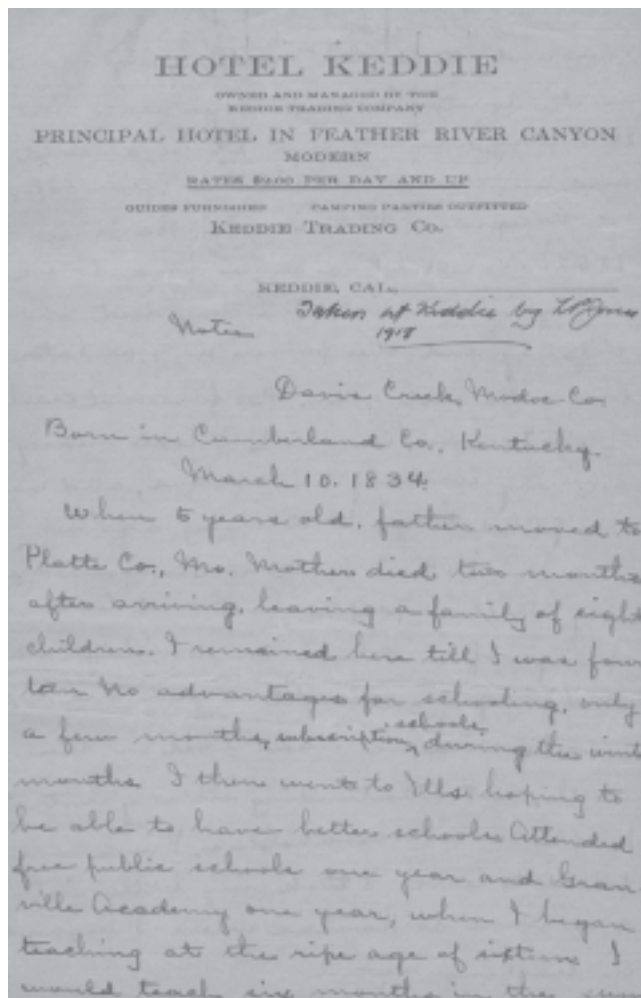 HOTEL KEDDIE
OWNED AND MANAGED BY THE
KEDDIE TRADING COMPANY
PRINCIPAL HOTEL IN FEATHER RIVER CANYON
MODERN
RATES $2.00 PER DAY AND UP
GUIDES FURNISHED CAMPING PARTIES OUTFITTED
KEDDIE TRADING CO.
KEDDIE, CAL.,
Notes Taken at Keddie by
1918
Davis Creek, Modoc Co
Born in Cumberland Co., Kentucky.
March 10. 1834.
When 5 years old, father moved to
Platte Co., Mo. Mother died two months
after arriving, leaving a family of eight
children. I remained here till I was four
teen No advantages for schooling, only
a few months, subscription schools, during the wint
months I then went to Ills. hoping to
be able to have better schools Attended
free public schools one year and Gran
ville Academy one year, when I began
teaching at the ripe age of sixteen I
would teach six months in the